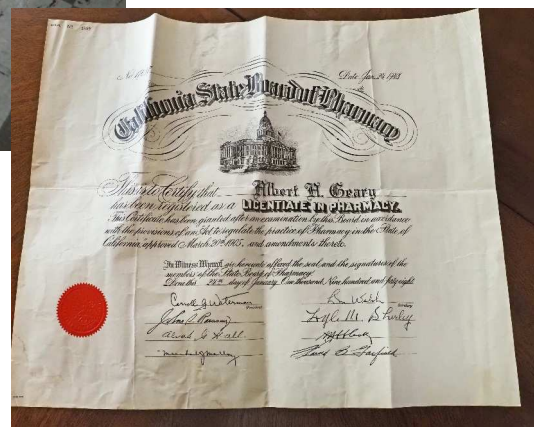 Date Jan. 24 1948
California State Board of Pharmacy
This is to Certify that Albert H. Geary
has been registered as a LICENTIATE IN PHARMACY.
This Certificate has been granted after an examination by this Board in accordance
with the provisions of an Act to regulate the practice of Pharmacy in the State of
California, approved March 20th 1905, and amendments thereto.
In Witness Whereof, we hereunto affixed the seal and the signatures of the
members of the State Board of Pharmacy.
Done this 24th day of January, One thousand, Nine hundred and forty eight
Waterman
President
Secretary